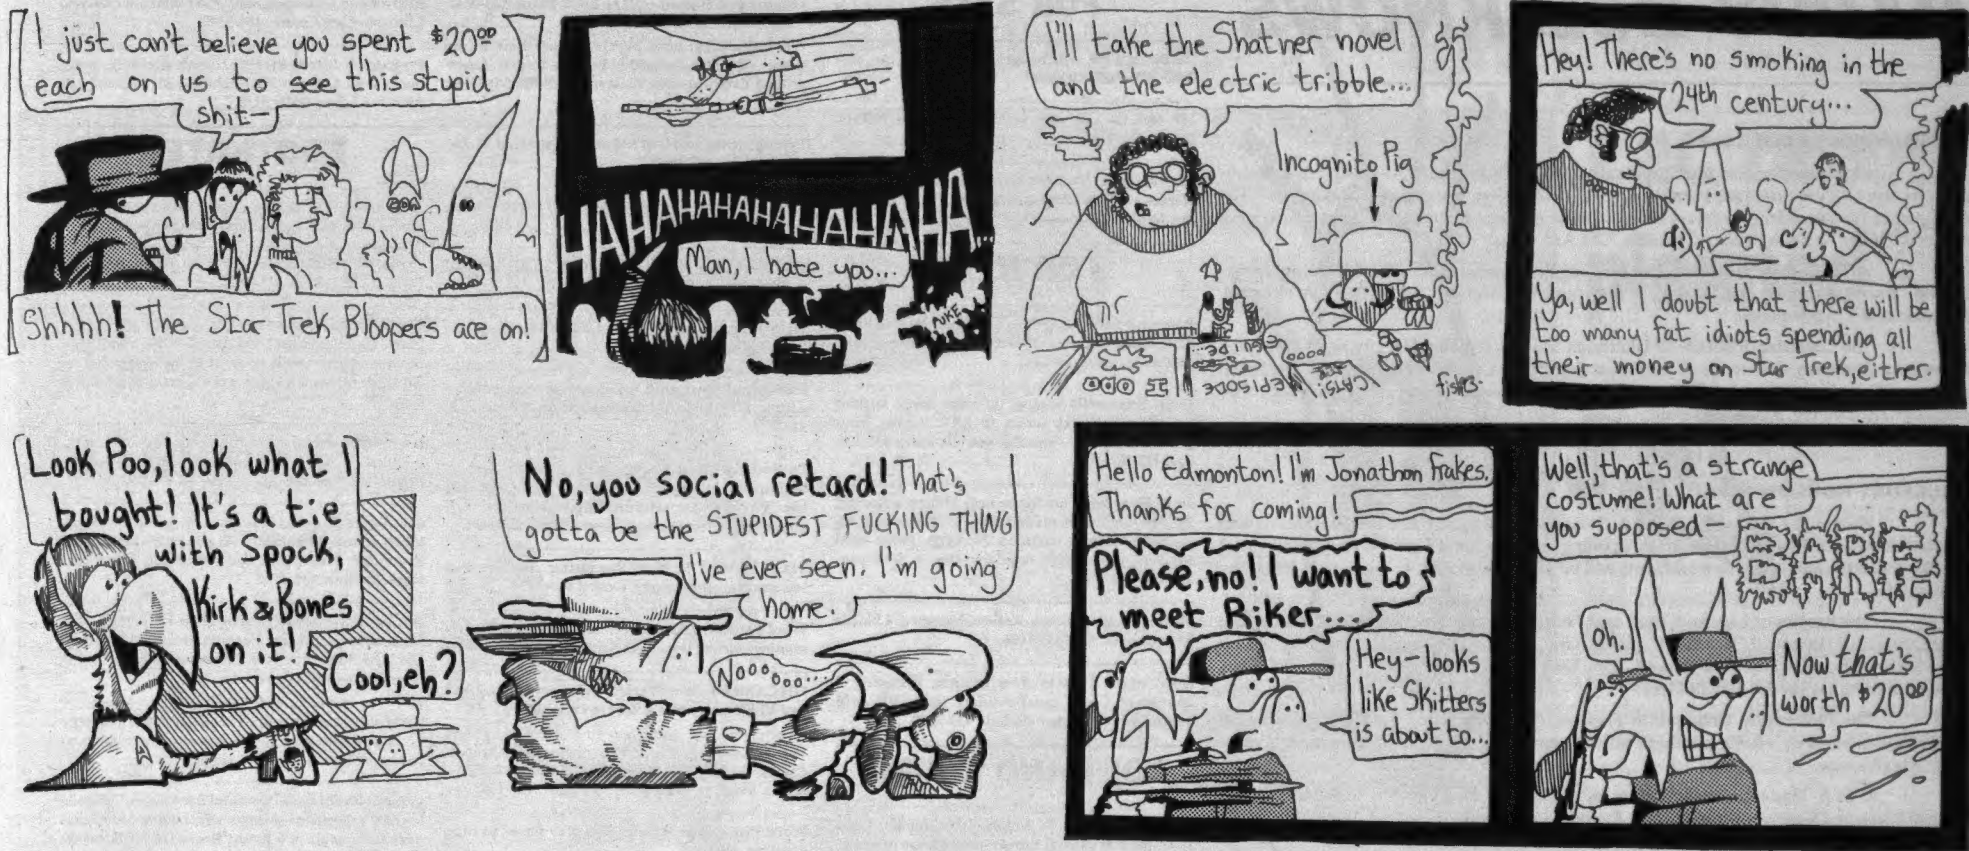 I just can't believe you spent $20.00
each on us to see this stupid
shit—
Shhhh! The Star Trek Bloopers are on!
HAHAHAHAHAHAHAHAHA...
Man, I hate you...
PUKE
I'll take the Shatner novel
and the electric tribble...
Incognito Pig
EPISODE
GUIDE
CATS!
fish
Hey! There's no smoking in the
24th century...
Ya, well I doubt that there will be
too many fat idiots spending all
their money on Star Trek, either.
Look Poo, look what I
bought! It's a tie
with Spock,
Kirk & Bones
on it!
Cool, eh?
No, you social retard! That's
gotta be the STUPIDEST FUCKING THING
I've ever seen. I'm going
home.
Nooo ooo...
Hello Edmonton! I'm Jonathon Frakes.
Thanks for coming!
Please, no! I want to
meet Riker...
Hey—looks
like Skitters
is about to...
Well, that's a strange
costume! What are
you supposed—
oh.
Now that's
worth $20.00